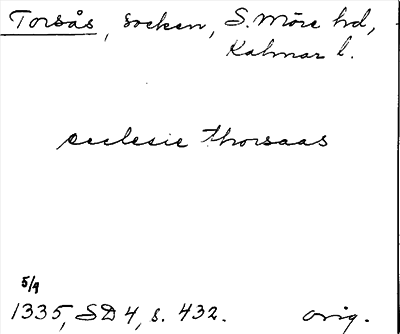 Torsås, socken, S. Möre hd,
Kalmar l.
ecclesie thorsaas
5/9
1335, SD 4, s. 432. orig.